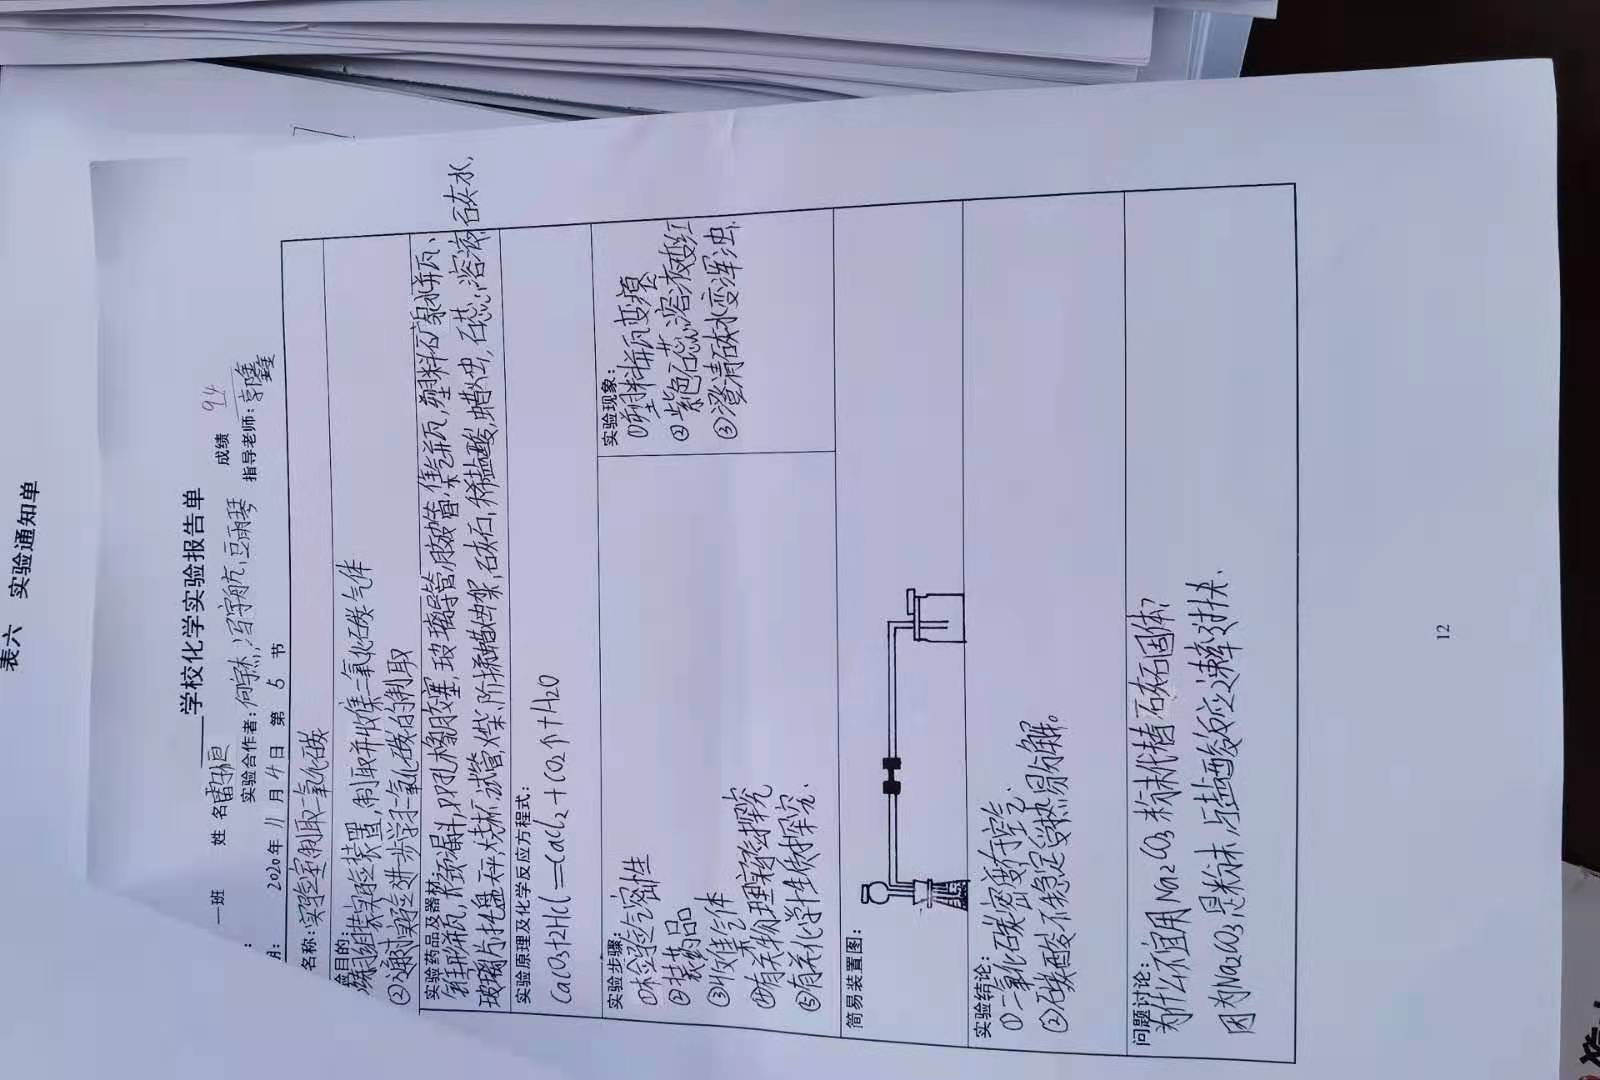 表六 实验通知单
学校化学实验报告单
一班 姓名雷恒 成绩 94
实验合作者:何宇杰,冯宇航,豆雨琴 指导老师:
2020年11月4日 第5节
名称:实验室制取二氧化碳
实验目的:
练习组装实验装置,制取并收集二氧化碳气体
②通过实验进一步学习二氧化碳的制取
实验药品及器材:
锥形瓶,长颈漏斗,双孔橡胶塞,玻璃导管,胶皮管,集气瓶,塑料矿泉水瓶、
玻璃片,托盘天平,烧杯,试管,火柴,阶梯蜡烛架,石灰石,稀盐酸,蜡烛,石蕊溶液,石灰水,
实验原理及化学反应方程式:
CaCO3+2HCl=CaCl2+CO2↑+H2O
实验步骤:
①检验气密性
②装药品
③收集气体
④有关物理实验探究
⑤有关化学性质探究.
实验现象:
①塑料瓶变瘪
②紫色石蕊溶液变红
③澄清石灰水变浑浊.
简易装置图:
实验结论:
①二氧化碳密度大于空气.
②碳酸不稳定受热易分解。
问题讨论:
为什么不宜用Na2CO3粉末代替石灰石固体,
因为Na2CO3是粉末,与盐酸反应速率过快.
12